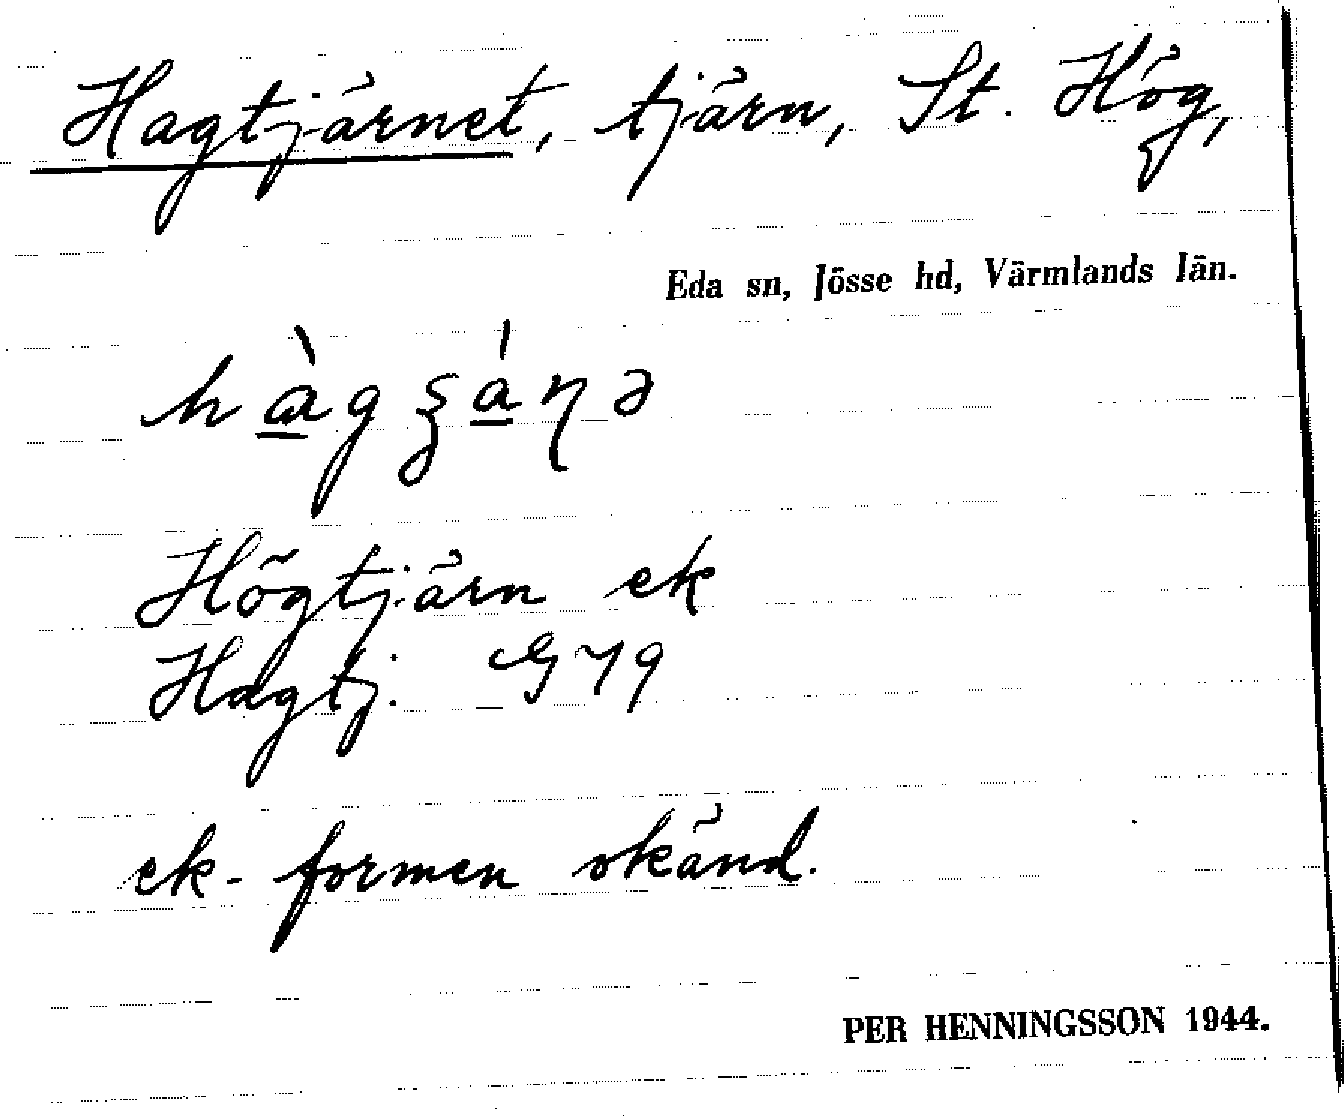 Hagtjärnet, tjärn, St. Hög,
Eda sn, Jösse hd, Värmlands län.
Högtjärn ek
Hagtj. G 79
ek-formen okänd.
PER HENNINGSSON 1944.